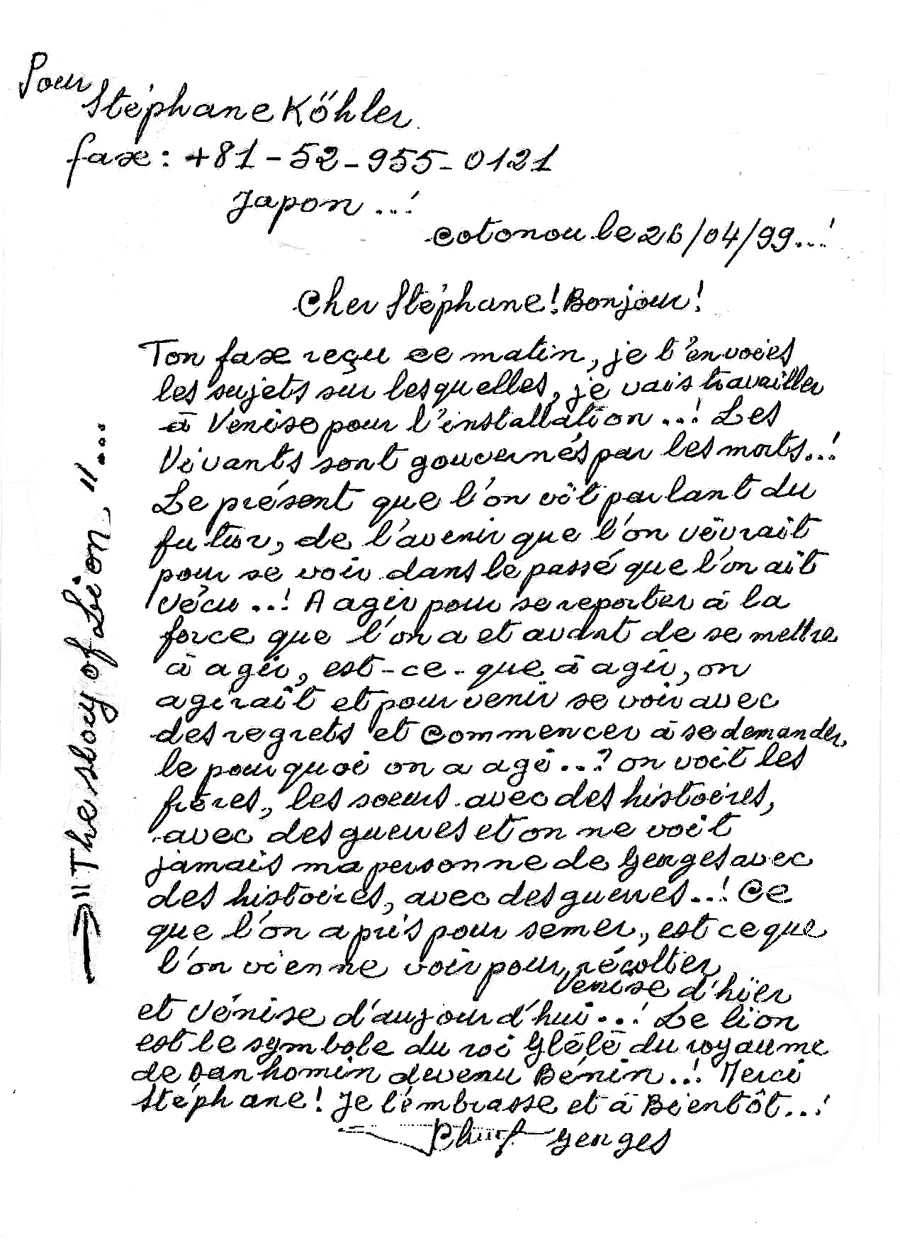 Pour
Stéphane Köhler
fax : +81-52-955-0121
Japon ...!
Cotonou le 26/04/99...!
Cher Stéphane! Bonjour!
Ton fax reçu ce matin, je t'envoies
les sujets sur lesquelles, je vais travailler
à Venise pour l'installation ...! Les
Vivants sont gouvernés par les morts...!
Le présent que l'on vît parlant du
futur, de l'avenir que l'on vêvrait
pour se voir dans le passé que l'on ait
vécu ...! A agir pour se reporter à la
force que l'on a et avant de se mettre
à agir, est-ce-que à agir, on
agiraît et pour venir se voir avec
des regrets et commencer à se demander,
le pourquoi on a agi ...? on voit les
frères, les soeurs avec des histoires,
avec des guerres et on ne voit
jamais ma personne de Georges avec
des histoires, avec des guerres...! Ce
que l'on a pris pour semer, est ce que
l'on vienne voir pour récolter,
Venise d'hïer
et Vénise d'aujourd'hui...! Le lion
est le symbole du roi Glèlè du royaume
de Danhomin devenu Bénin...! Merci
Stéphane! Je t'embrasse et à Bientôt...!
Georges
→ "The story of Lion" ...